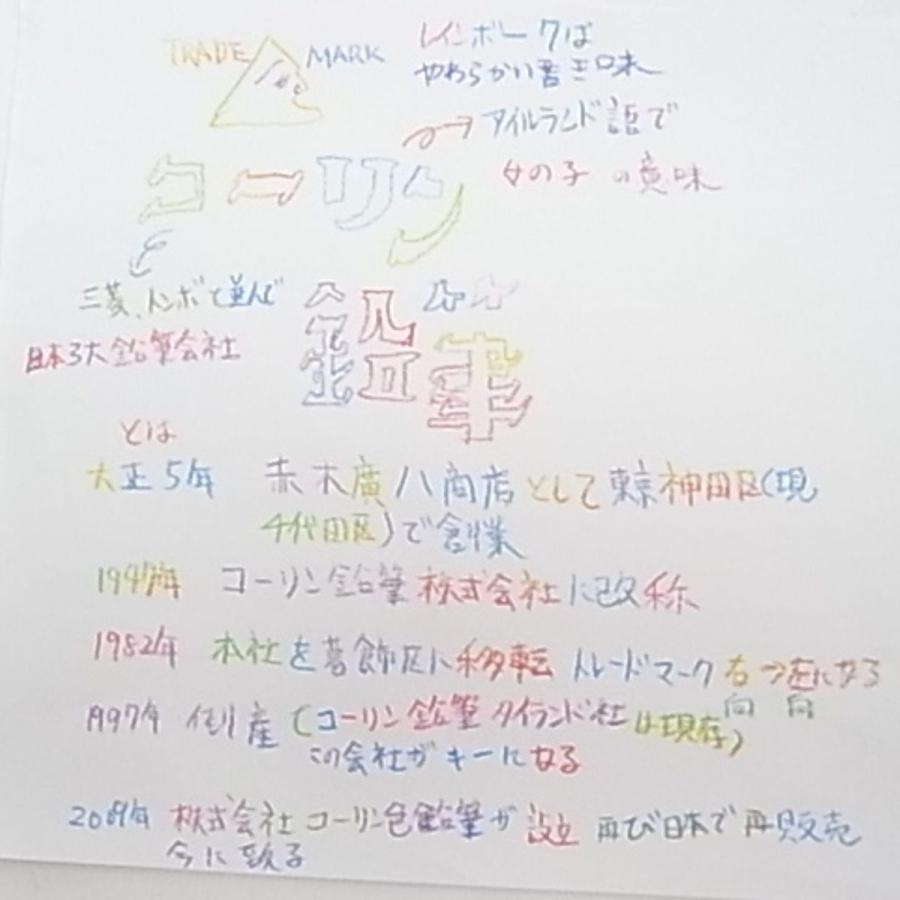 TRADE MARK
レインボークは
やわらかい書き味
アイルランド語で
女の子の意味
コーリン
三菱、トンボと並んで
日本3大鉛筆会社
鉛筆
とは
大正5年 赤木廣八商店として東京神田区(現
千代田区)で創業
1947年 コーリン鉛筆株式会社に改称
1982年 本社を葛飾区に移転 トレードマーク右→左になる
向 向
1997年 倒産(コーリン鉛筆タイランド社は現存)
この会社がキーになる
年 株式会社コーリン色鉛筆が設立 再び日本で再販売
今に至る